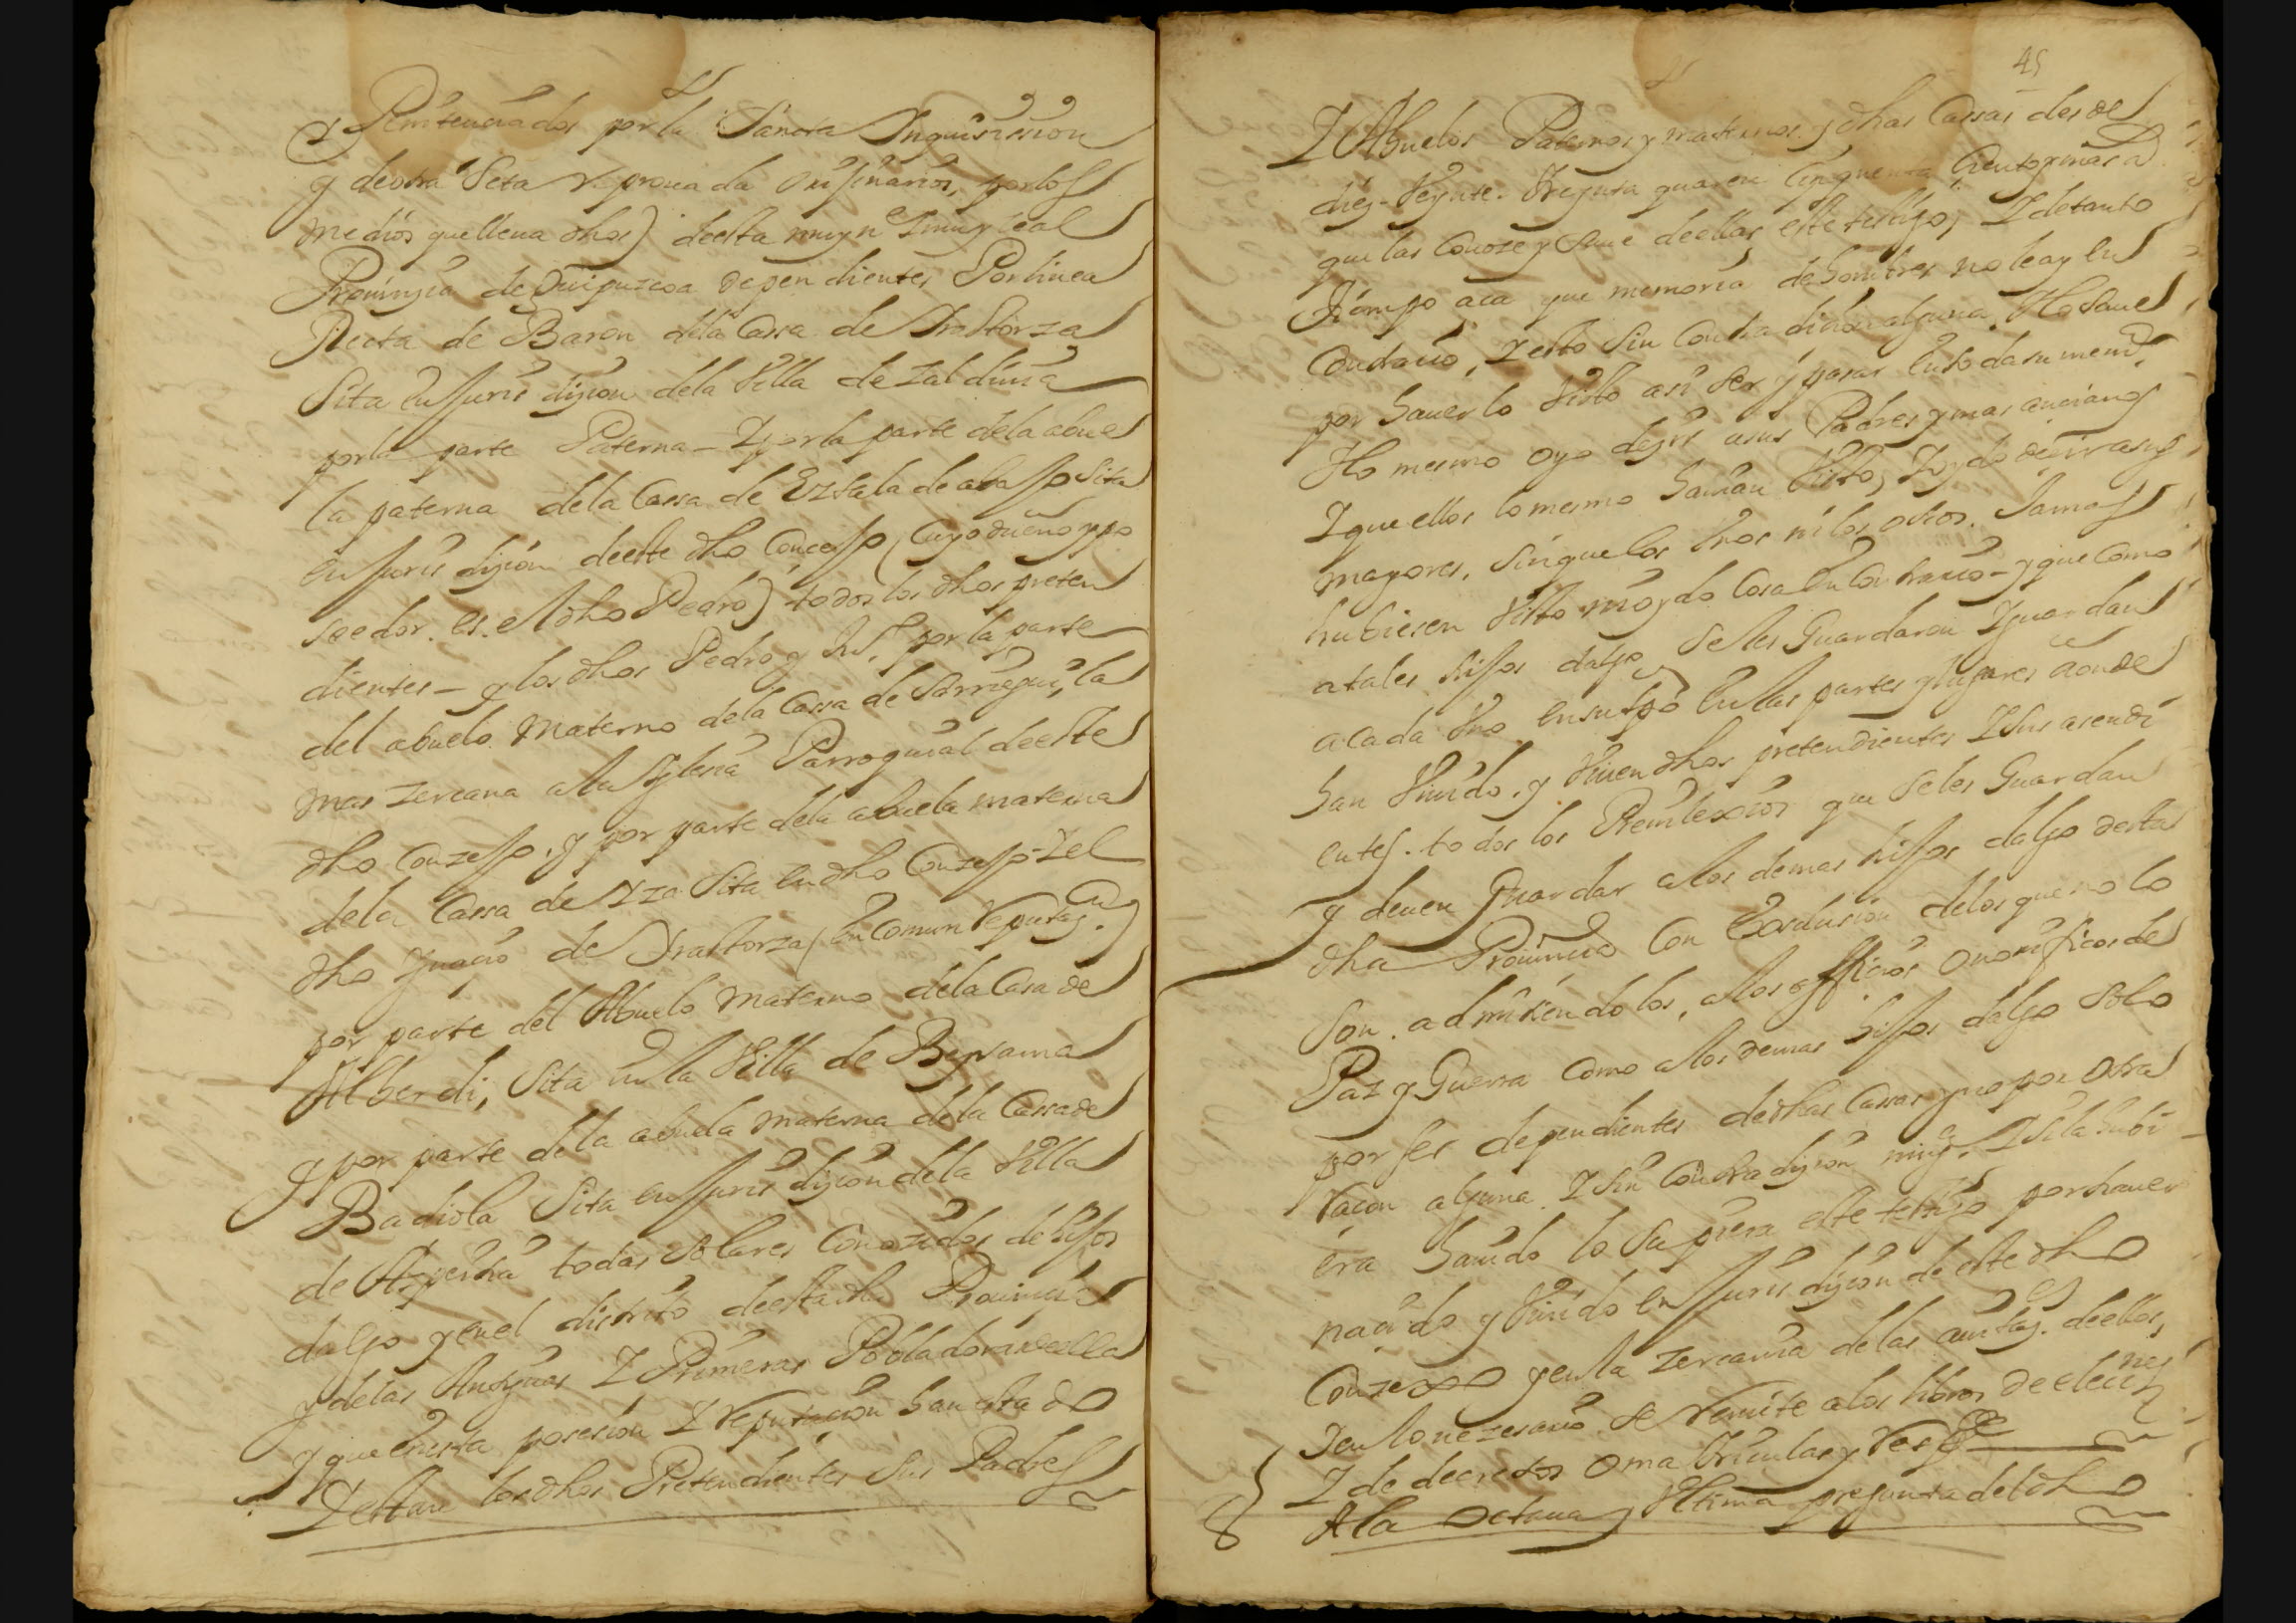 y Penitenciados por la Sancta Inquisission
y de otra seta reprouada originarios, por los
medios que lleua dhos) de esta muy n.e y muy leal
Prouinçia de Guipuzcoa dependientes Por linea
Recta de Baron dela Cassa de Irastorza
Sita en Jurisdiçion dela Villa de Zaldiuia
por la parte Paterna - Y por la parte dela abue
la paterna dela Cassa de de abajo sita
en Jurisdiçion de este dho Conçejo (Cuyo dueño y po
seedor. es. el dho Pedro) todos los dhos preten
dientes - y los dhos Pedro y por la parte
del abuelo Materno dela Cassa de Sarriegui, la
mas zercana a la Iglesia Parroquial de este
dho Conzejo. y por parte dela abuela materna
dela Cassa de Yza Sita en dho Conzejo - Y el
dho Ygnaçio de Irastorza (en Comun Reputaç.on)
por parte del Abuelo Materno dela Casa de
Alberdi, Sita en la Villa de Beyzama
y por parte de la abuela materna dela Cassa de
Badiola Sita en Jurisdiçion dela Villa
de Azpeitia todas solares Conozidos de hijos
dalgo y en el districto de esta dha Prouinçia
y delas Antiguas Y Primeras Pobladoras de ella
y que en esta posesion Y reputaçion han estado
Y estan los dhos Pretendientes sus Padres
45
Y Abuelos Paternos y maternos. y dhas Cassas desde
diez - Veynte. Treynta quarenta Cinquenta Ciento y mas a.os
que las Conoze y Saue de ellas este testigo, Y de tanto
tiempo aca que memoria de hombres no le ay en
Contrario, Y esto sin Contradicion alguna. Y lo saue
por hauerlo Visto asi ser y pasar en toda su mem.a
Y lo mesmo oyo dezir a sus Padres y mas ancianos
Y que ellos lo mesmo hauian Visto, Y oydo dezir a sus
mayores, sin que los Vnos ni los otros. Jamas
hubiesen Visto ni oydo Cosa en Contrario - y que Como
a tales hijos dalgo se les Guardaron Y guardan
a cada Vno en su tpo en las partes y lugares donde
han Viuido. y Viuen dhos pretendientes Y sus asendi
entes. todos los Preuilexios que se les Guardan
y deuen Guardar a los demas hijos dalgo desta
dha Prouincia Con Exclusion delos que no lo
son. admitiendolos, a los offiçios onorificos de
Paz y Guerra Como a los demas hijos dalgo Solo
por ser dependientes de dhas Cassas y no por otra
racon alguna. Y sin Contradiçion ning.a Y si la hubi
era hauido lo supiera este testigo por hauer
naçido y Viuido en Jurisdiçion de este dho
Conzexo y en la zercania delas de ellos,
Y en lo nezesario se remite a los libros de eleciones
Y de decretos o matriculas y Resp.de
8 A la Octaua y Vltima pregunta del dho